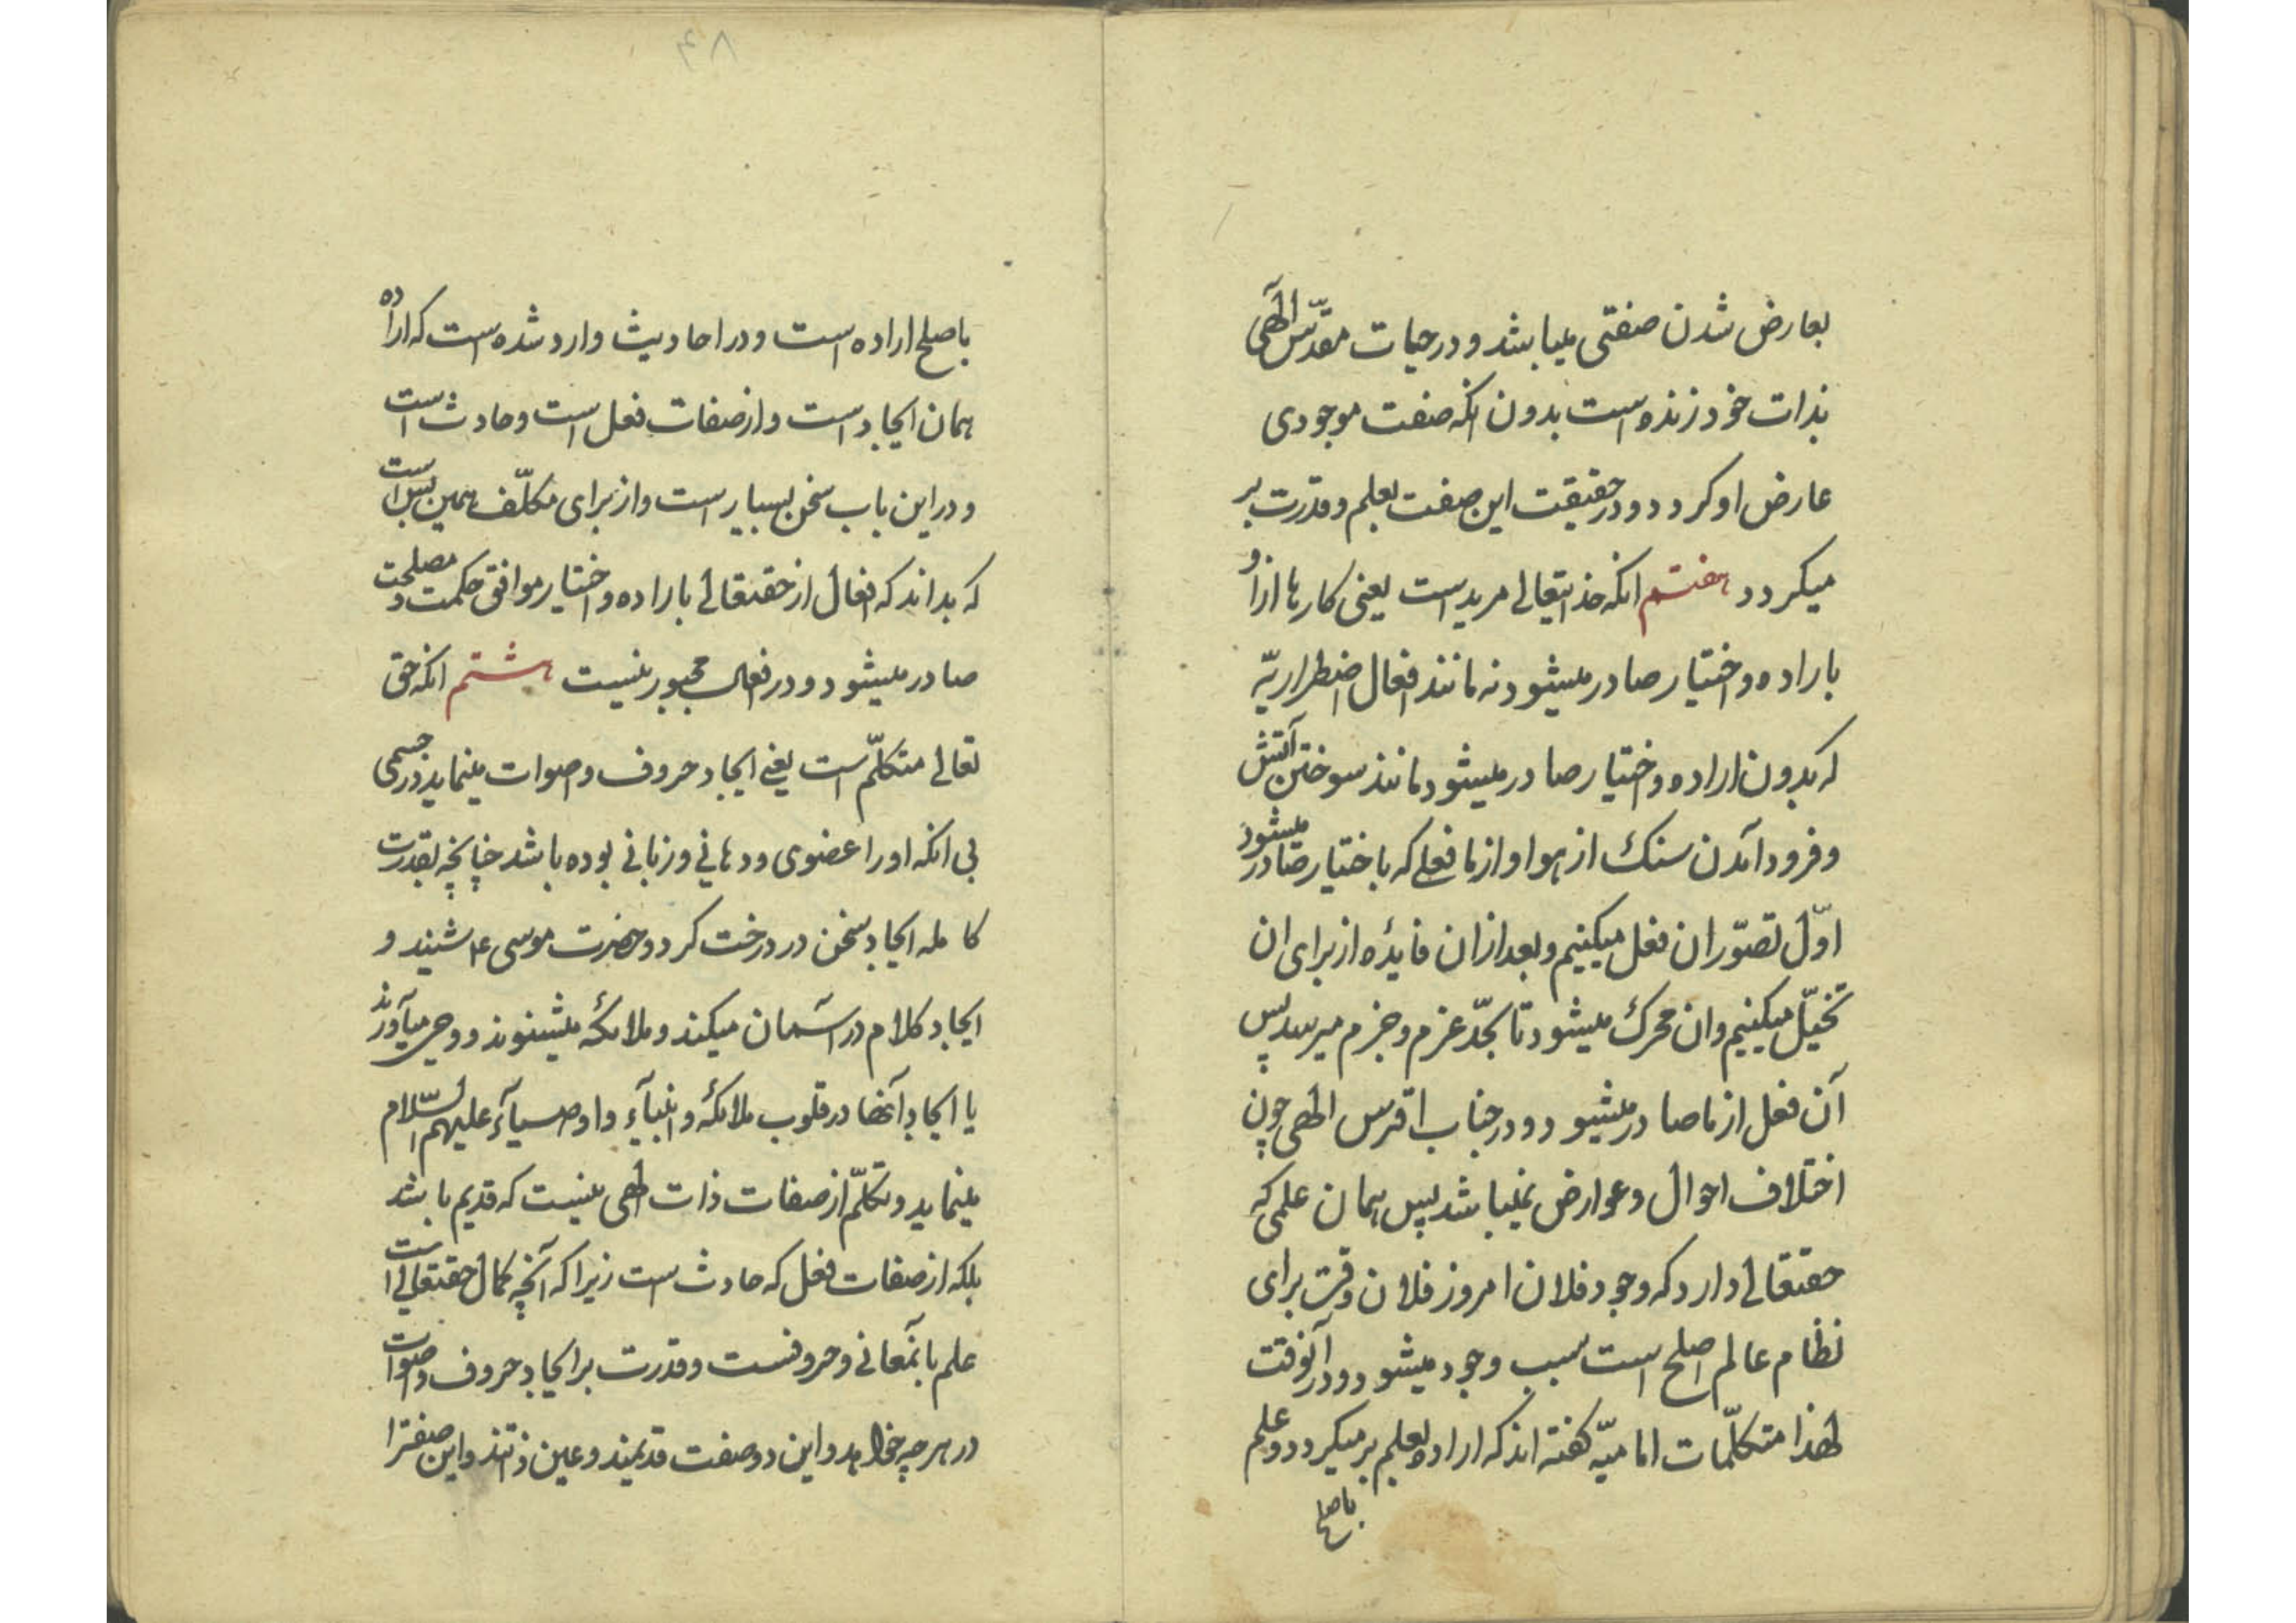 بعارض شدن صفتی میباشد و در حیات مقدّس الٓهی
بذات خود زنده است بدون انکه صفت موجودی
عارض او کردد و در حقیقت این صفت بعلم و قدرت بر
میکردد هفتم انکه خدایتعالی مرید است یعنی کارها ازو
باراده و اختیار صادر میشود نه مانند افعال اضطراریّه
که بدون اراده و اختیار صادر میشود مانند سوختن آتش
و فرود آمدن سنک از هوا و از ما فعلی که باختیار صادر میشود
اوّل تصوّر ان فعل میکنیم و بعد از ان فایدٔه از برای ان
تخیّل میکنیم و ان محرک میشود تا بحّد عزم و جزم میرسد پس
آن فعل از ما صادر میشود و در جناب اقدس الهی چون
اختلاف احوال و عوارض نمیباشد پس همان علمی که
حقتعالی دارد که وجود فلان امر در فلان وقت برای
نظام عالم اصلح است سبب وجود میشود و در آنوقت
لهذا متکلّمات امامیّه کفته اند که اراده بعلم بر میکردد و علم
باصلح
۴۸
باصلح اراده است و در احادیث وارد شده است که اراده
همان ایجاد است و از صفات فعل است و حادث است
و در این باب سخن بسیار است و از برای مکلّف همین بس است
که بداند که افعال از حقتعالی باراده و اختیار موافق حکمت و مصلحت
صادر میشود و در فعال مجبور نیست هشتم انکه حق
تعالی متکلّم است یعنی ایجاد حروف و اصوات مینماید در جسمی
بی انکه او را عضوی و دهانی و زبانی بوده باشد چنانچه بقدرت
کامله ایجاد سخن در درخت کرد و حضرت موسی ع شنید و
ایجاد کلام در آسمان میکند و ملائکه میشنوند و وحی میآورند
یا ایجاد آنها در قلوب ملائکه و انبیآء و اوصیآء علیهم السّلام
مینماید و تکلّم از صفات ذات الهی نیست که قدیم باشد
بلکه از صفات فعل که حادث است زیرا که آنچه کمال حقتعالی است
علم بآنمعانی و حروفست و قدرت بر ایجاد حروف و اصوات
در هر چه خواهد و این دو صفت قدیمند و عین ذاتند و این صفترا